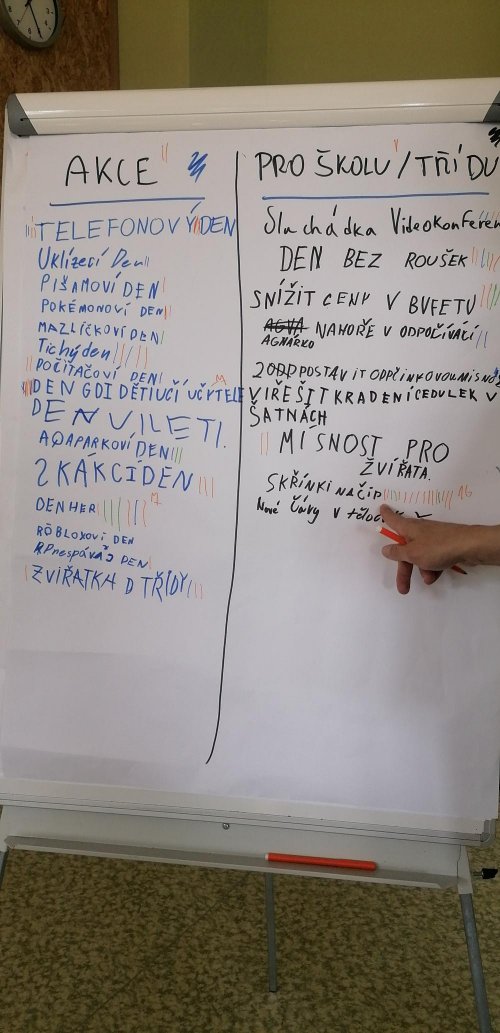 AKCE
TELEFONOVÝ DEN
Uklízecí Den
PIŠAMOVÍ DEN
POKÉMONOVÍ DEN
MAZLÍČKOVÍ DEN
Tichý den
POČÍTAČOVÍ DEN
DEN GDI DĚTI UČÍ UČYTELE
DEN VILETI.
AQAPARKOVÍ DEN
SKÁKCÍ DEN
DEN HER 17
RÓBLOXOVÍ DEN
DEN
ZVÍŘATKA D TŘÍDY
PRO ŠKOLU / TŘÍDU
Sluchádka Videokonferen
DEN BEZ ROUŠEK
SNÍŽIT CENY V BUFETU
NAHOŘE V ODPOČÍVÁCÍ
AGNÁRKO
POSTAVIT
VIŘEŠIT KRADENÍ CEDULEK V
ŠATNÁCH
MISNOST PRO
ZVÍŘATA.
SKŘÍNKI NA ČIP 16
Nové Čáry v